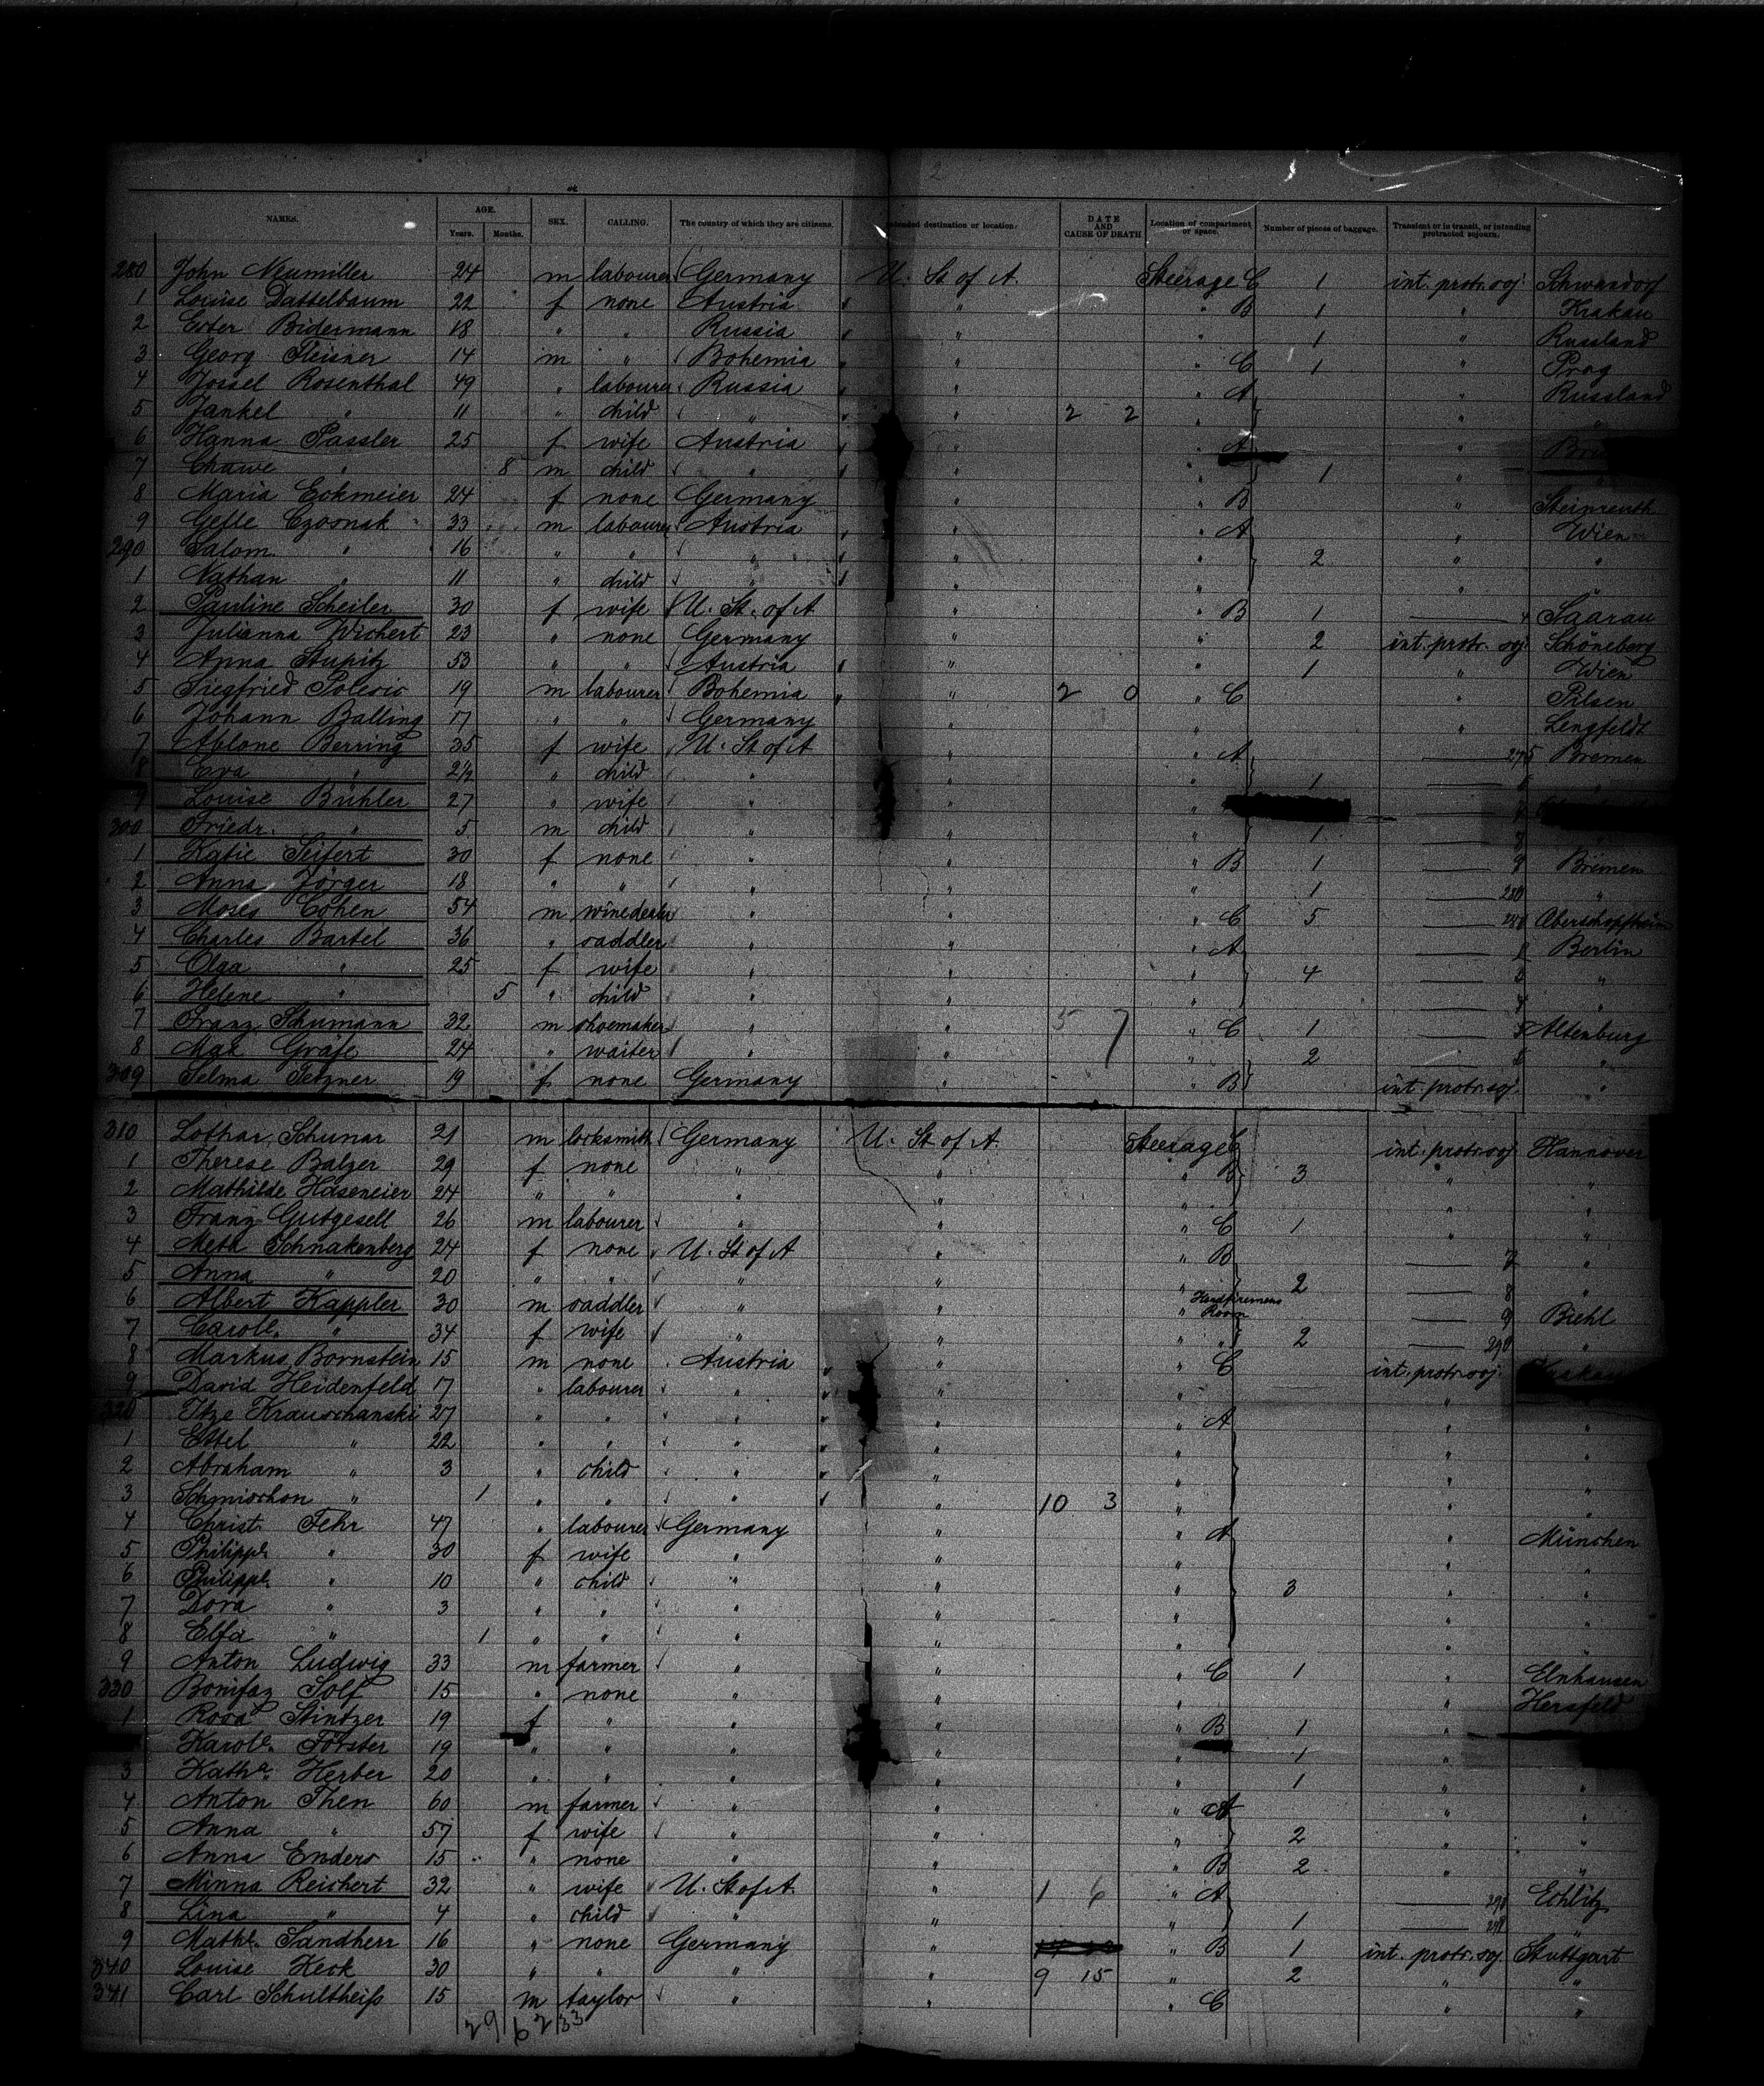 2
NAMES. AGE. Years. Months. SEX. CALLING. The country of which they are citizens. Intended destination or location. DATE AND CAUSE OF DEATH Location of compartment or space. Number of pieces of baggage. Transient or in transit, or intending protracted sojourn.
280 John Neumiller 24 m labourer Germany U. St of A. Steerage C 1 int. protr. soj. Schwasdorf
1 Louise Dattelbaum 22 f none Austria " " B 1 " Krakau
2 Ester Bidermann 18 " " Russia " " 1 " Russland
3 Georg Fleisner 14 m " Bohemia " " C 1 " Prag
4 Jossel Rosenthal 49 " labourer Russia " " A " Russland
5 Jankel " 11 " child " " 2 2 " " "
6 Hanna Passler 25 f wife Austria " " A "
7 Chawe " 8 m child " " " 1 " "
8 Maria Eckmeier 24 f none Germany " " B " Steinreuth
9 Gelle Czosnak 33 m labourer Austria " " A " Wien
290 Salom " 16 " " " " " 2 " "
1 Nathan " 11 " child " " " " "
2 Pauline Scheiler 30 f wife U. St. of A " " B 1 4 Saarau
3 Julianna Wichert 23 " none Germany " " 2 int. protr. soj. Schöneberg
4 Anna Stupitz 53 " " Austria " " 1 " Wien
5 Siegfried Polesic 19 m labourer Bohemia " 2 0 " C " Pilsen
6 Johann Balling 17 " " Germany " " " Lengfeldt
7 Ablone Berring 35 f wife U. St of A " " A 275 Bremen
8 Eva " 2½ " child " " " 1 6 "
9 Louise Bühler 27 " wife " " "
300 Friedr. " 5 m child " " " 1 8 "
1 Katie Seifert 30 f none " " " B 1 9 Bremen
2 Anna Jörger 18 " " " " " 1 280 "
3 Moses Cohen 54 m winedealer " " " C 5 281 Oberschopfheim
4 Charles Bartel 36 " saddler " " " A 2 Berlin
5 Olga " 25 f wife " " " 4 3 "
6 Helene " 5 " child " " " 4 "
7 Franz Schumann 32 m shoemaker " " 5 7 " C 1 5 Altenburg
8 Max Gräfe 24 " waiter " " " 2 6 "
309 Selma Petzner 19 f none Germany " " B int. protr. soj. "
310 Lothar Schunar 21 m locksmith Germany U. St of A. Steerage C int. protr. soj. Hannover
1 Therese Balzer 29 f none " " " B 3 " "
2 Mathilde Haseneier 24 " " " " " " "
3 Franz Gutgesell 26 m labourer " " " C 1 " "
4 Meta Schnakenberg 24 f none U. St of A " " B 7 "
5 Anna " 20 " " " " " 2 8 "
6 Albert Kappler 30 m saddler " " " Headfiremens Room 9 Biehl
7 Carole. " 34 f wife " " " " 2 290 "
8 Markus Bornstein 15 m none Austria " " C int. protr. soj. Krakau
9 David Heidenfeld 17 " labourer " " " " "
320 Itze Krauschanski 27 " " " " " A " "
1 Ettel " 22 " " " " " " "
2 Abraham " 3 " child " " " " "
3 Schmischon " 1 " " " " 10 3 " " "
4 Christ. Fehr 47 " labourer Germany " " A " München
5 Philippe. " 30 f wife " " " " "
6 Philippe. " 10 " child " " " 3 " "
7 Dora " 3 " " " " " " "
8 Elfa " 1 " " " " " " "
9 Anton Ludwig 33 m farmer " " " C 1 " Elnhausen
330 Bonifaz Solf 15 " none " " " " Hersfeld
1 Rosa Stintzer 19 f " " " " B 1 "
Karole. Förster 19 " " " " " 1 "
3 Katha. Herber 20 " " " " " 1 " "
4 Anton Then 60 m farmer " " " A " "
5 Anna " 57 f wife " " " 2 " "
6 Anna Enders 15 " none " " " B 2 " "
7 Minna Reichert 32 " wife U. St of A. " 1 6 " A 291 Echlitz
8 Lina " 4 " child " " " 1 "
9 Mathe. Sandherr 16 " none Germany " " B 1 int. protr. soj. Stuttgart
340 Louise Heck 30 " " " " 9 15 " 2 " "
341 Carl Schultheiß 15 m taylor " " " C " "
29 62 33